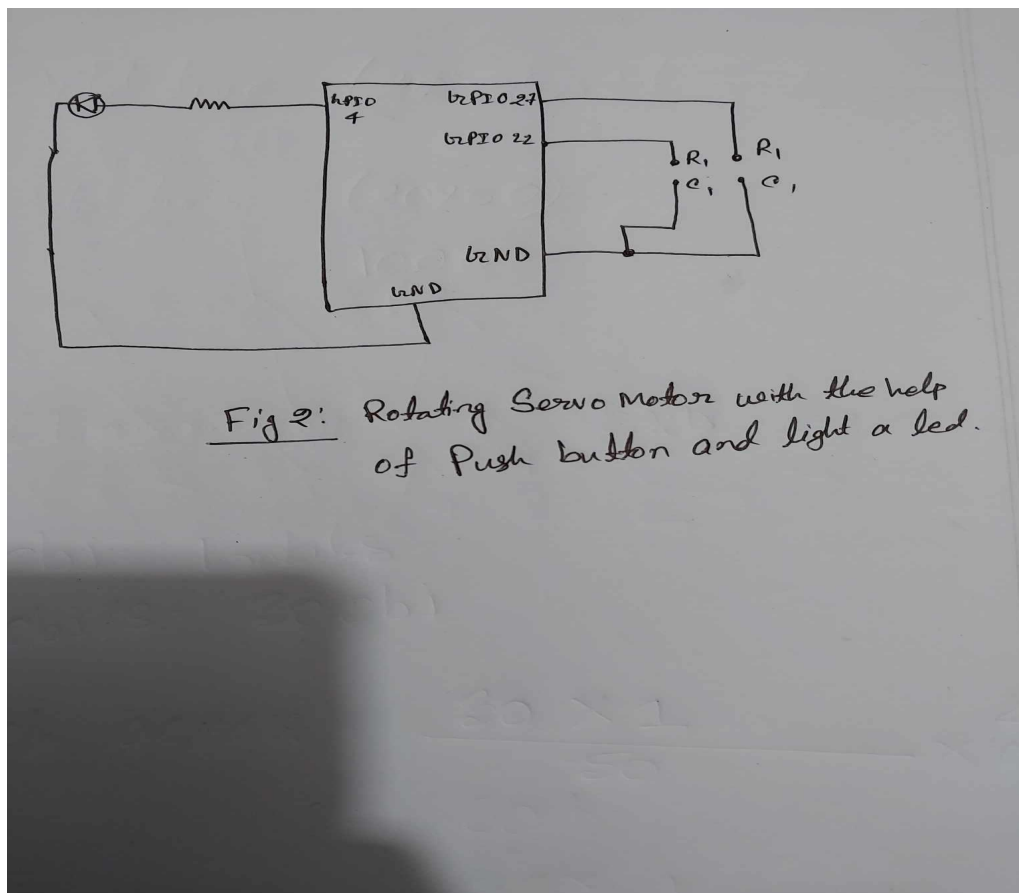 GPIO
4
GPIO 27
GPIO 22
R1
C1
R1
C1
GND
GND
Fig 2: Rotating Servo Motor with the help
of Push button and light a led.